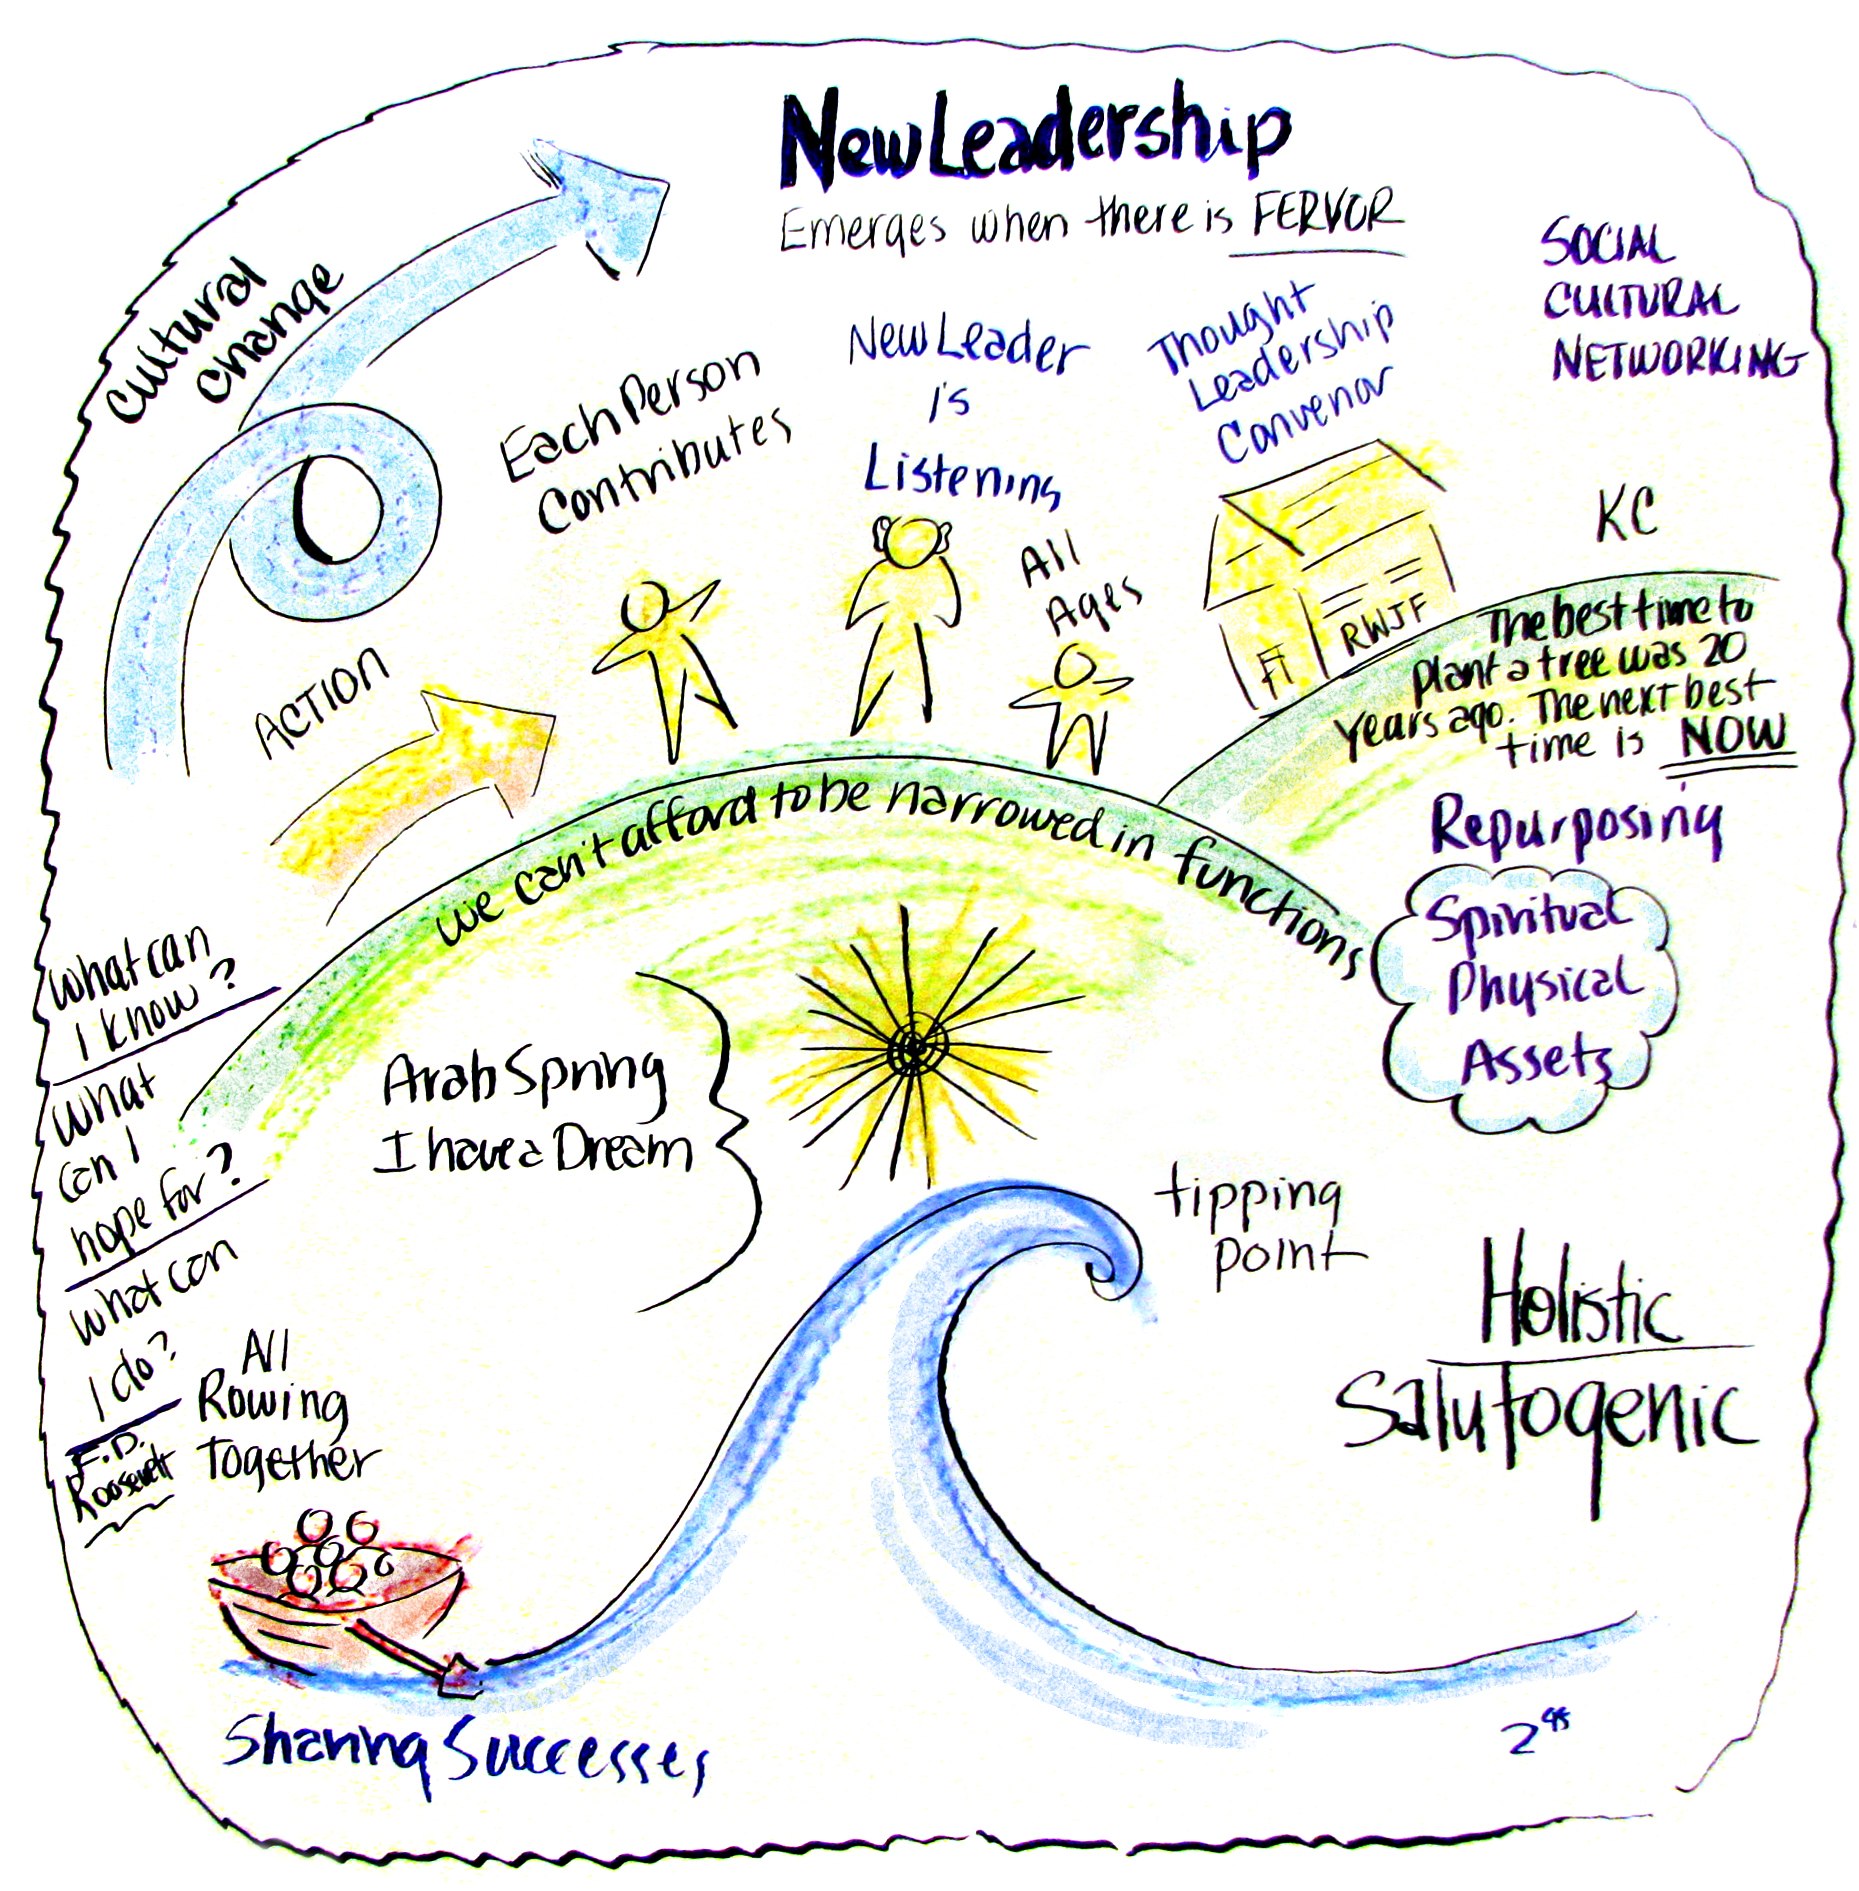 New Leadership
Emerges when there is FERVOR
SOCIAL
CULTURAL
NETWORKING
Cultural
Change
Each Person
Contributes
New Leader
is
Listening
Thought
Leadership
Convenor
All
Ages
KC
RWJF
ACTION
The best time to
plant a tree was 20
years ago. The next best
time is NOW
we can't afford to be narrowed in functions
Repurposing
Spiritual
Physical
Assets
What can
I know?
What
can I
hope for?
What can
I do?
F.D.
Roosevelt
Arab Spring
I have a Dream
tipping
point
Holistic
Salutogenic
All
Rowing
Together
Sharing Successes